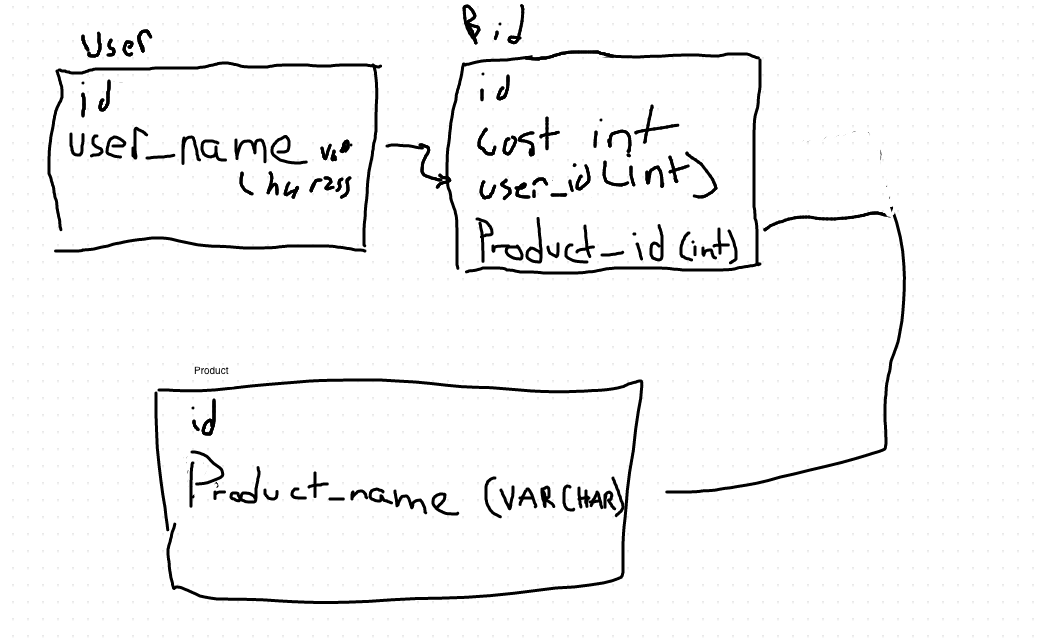 User
id
user_name
Bid
id
cost int
user_id (int)
Product_id (int)
Product
id
Product_name (VARCHAR)